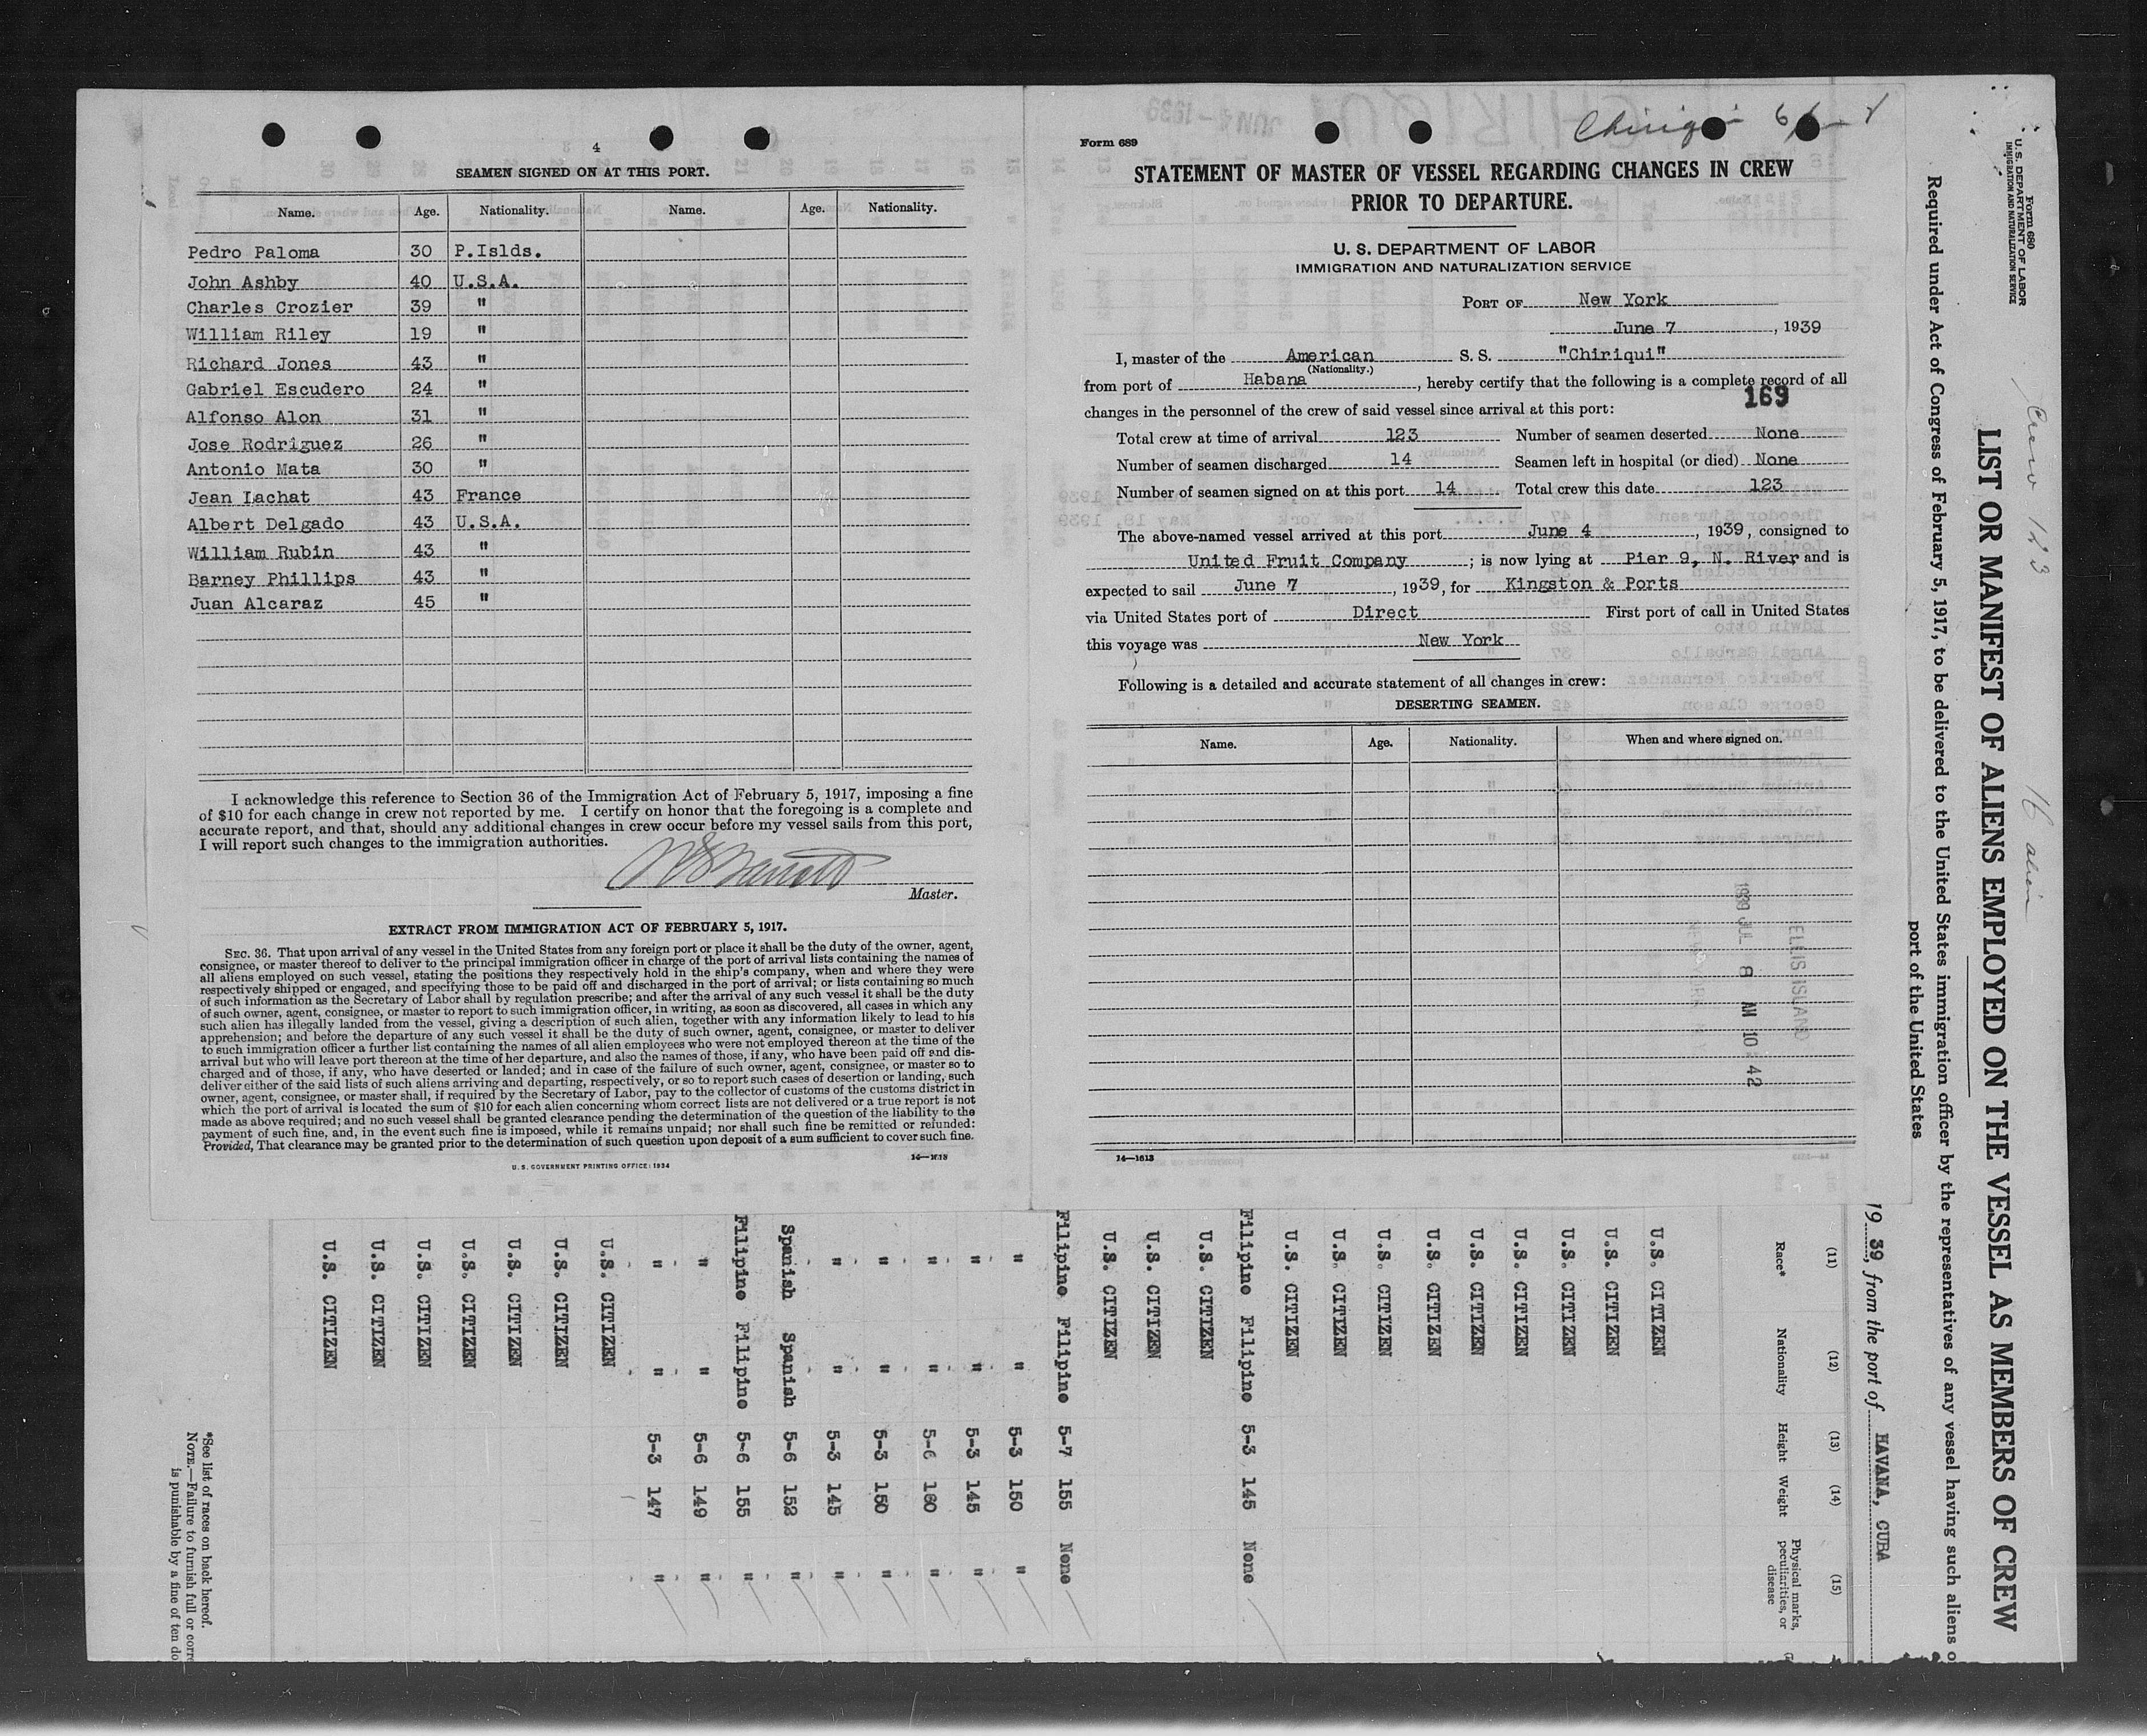 4
SEAMEN SIGNED ON AT THIS PORT.
Name. Age. Nationality. Name. Age. Nationality.
Pedro Paloma 30 P.Islds.
John Ashby 40 U.S.A.
Charles Crozier 39 "
William Riley 19 "
Richard Jones 43 "
Gabriel Escudero 24 "
Alfonso Alon 31 "
Jose Rodriguez 26 "
Antonio Mata 30 "
Jean Lachat 43 France
Albert Delgado 43 U.S.A.
William Rubin 43 "
Barney Phillips 43 "
Juan Alcaraz 45 "
I acknowledge this reference to Section 36 of the Immigration Act of February 5, 1917, imposing a fine
of $10 for each change in crew not reported by me. I certify on honor that the foregoing is a complete and
accurate report, and that, should any additional changes in crew occur before my vessel sails from this port,
I will report such changes to the immigration authorities.
Master.
EXTRACT FROM IMMIGRATION ACT OF FEBRUARY 5, 1917.
SEC. 36. That upon arrival of any vessel in the United States from any foreign port or place it shall be the duty of the owner, agent,
consignee, or master thereof to deliver to the principal immigration officer in charge of the port of arrival lists containing the names of
all aliens employed on such vessel, stating the positions they respectively hold in the ship's company, when and where they were
respectively shipped or engaged, and specifying those to be paid off and discharged in the port of arrival; or lists containing so much
of such information as the Secretary of Labor shall by regulation prescribe; and after the arrival of any such vessel it shall be the duty
of such owner, agent, consignee, or master to report to such immigration officer, in writing, as soon as discovered, all cases in which any
such alien has illegally landed from the vessel, giving a description of such alien, together with any information likely to lead to his
apprehension; and before the departure of any such vessel it shall be the duty of such owner, agent, consignee, or master to deliver
to such immigration officer a further list containing the names of all alien employees who were not employed thereon at the time of the
arrival but who will leave port thereon at the time of her departure, and also the names of those, if any, who have been paid off and dis-
charged and of those, if any, who have deserted or landed; and in case of the failure of such owner, agent, consignee, or master so to
deliver either of the said lists of such aliens arriving and departing, respectively, or so to report such cases of desertion or landing, such
owner, agent, consignee, or master shall, if required by the Secretary of Labor, pay to the collector of customs of the customs district in
which the port of arrival is located the sum of $10 for each alien concerning whom correct lists are not delivered or a true report is not
made as above required; and no such vessel shall be granted clearance pending the determination of the question of the liability to the
payment of such fine, and, in the event such fine is imposed, while it remains unpaid; nor shall such fine be remitted or refunded:
Provided, That clearance may be granted prior to the determination of such question upon deposit of a sum sufficient to cover such fine.
14—1613
U.S. GOVERNMENT PRINTING OFFICE: 1934
Form 689
STATEMENT OF MASTER OF VESSEL REGARDING CHANGES IN CREW
PRIOR TO DEPARTURE.
U. S. DEPARTMENT OF LABOR
IMMIGRATION AND NATURALIZATION SERVICE
PORT OF New York
June 7, 1939
I, master of the American S. S. "Chiriqui"
(Nationality.)
from port of Habana, hereby certify that the following is a complete record of all
169
changes in the personnel of the crew of said vessel since arrival at this port:
Total crew at time of arrival 123 Number of seamen deserted None
Number of seamen discharged 14 Seamen left in hospital (or died) None
Number of seamen signed on at this port 14 Total crew this date 123
The above-named vessel arrived at this port June 4, 1939, consigned to
United Fruit Company; is now lying at Pier 9, N. River and is
expected to sail June 7, 1939, for Kingston & Ports
via United States port of Direct First port of call in United States
this voyage was New York
Following is a detailed and accurate statement of all changes in crew:
DESERTING SEAMEN.
Name. Age. Nationality. When and where signed on.
1939 JUL 8 AM 10 42
ELLIS ISLAND
14—1613
Form 680
U.S. DEPARTMENT OF LABOR
IMMIGRATION AND NATURALIZATION SERVICE
Crew 123
16 alien
LIST OR MANIFEST OF ALIENS EMPLOYED ON THE VESSEL AS MEMBERS OF CREW
Required under Act of Congress of February 5, 1917, to be delivered to the United States immigration officer by the representatives of any vessel having such aliens o
port of the United States
1939, from the port of HAVANA, CUBA
(11) (12) (13) (14) (15)
Race* Nationality Height Weight Physical marks, peculiarities, or disease
U.S. CITIZEN
U.S. CITIZEN
U.S. CITIZEN
U.S. CITIZEN
U.S. CITIZEN
U.S. CITIZEN
U.S. CITIZEN
U.S. CITIZEN
U.S. CITIZEN
Filipino Filipino 5-3 145 None
U.S. CITIZEN
U.S. CITIZEN
U.S. CITIZEN
Filipino Filipino 5-7 155 None
" " 5-3 150 "
" " 5-3 145 "
" " 5-6 160 "
" " 5-3 150 "
" " 5-3 145 "
Spanish Spanish 5-6 152 "
Filipino Filipino 5-6 155 "
" " 5-6 149 "
" " 5-3 147 "
U.S. CITIZEN
U.S. CITIZEN
U.S. CITIZEN
U.S. CITIZEN
U.S. CITIZEN
U.S. CITIZEN
U.S. CITIZEN
*See list of races on back hereof.
NOTE.—Failure to furnish full or corre
is punishable by a fine of ten do